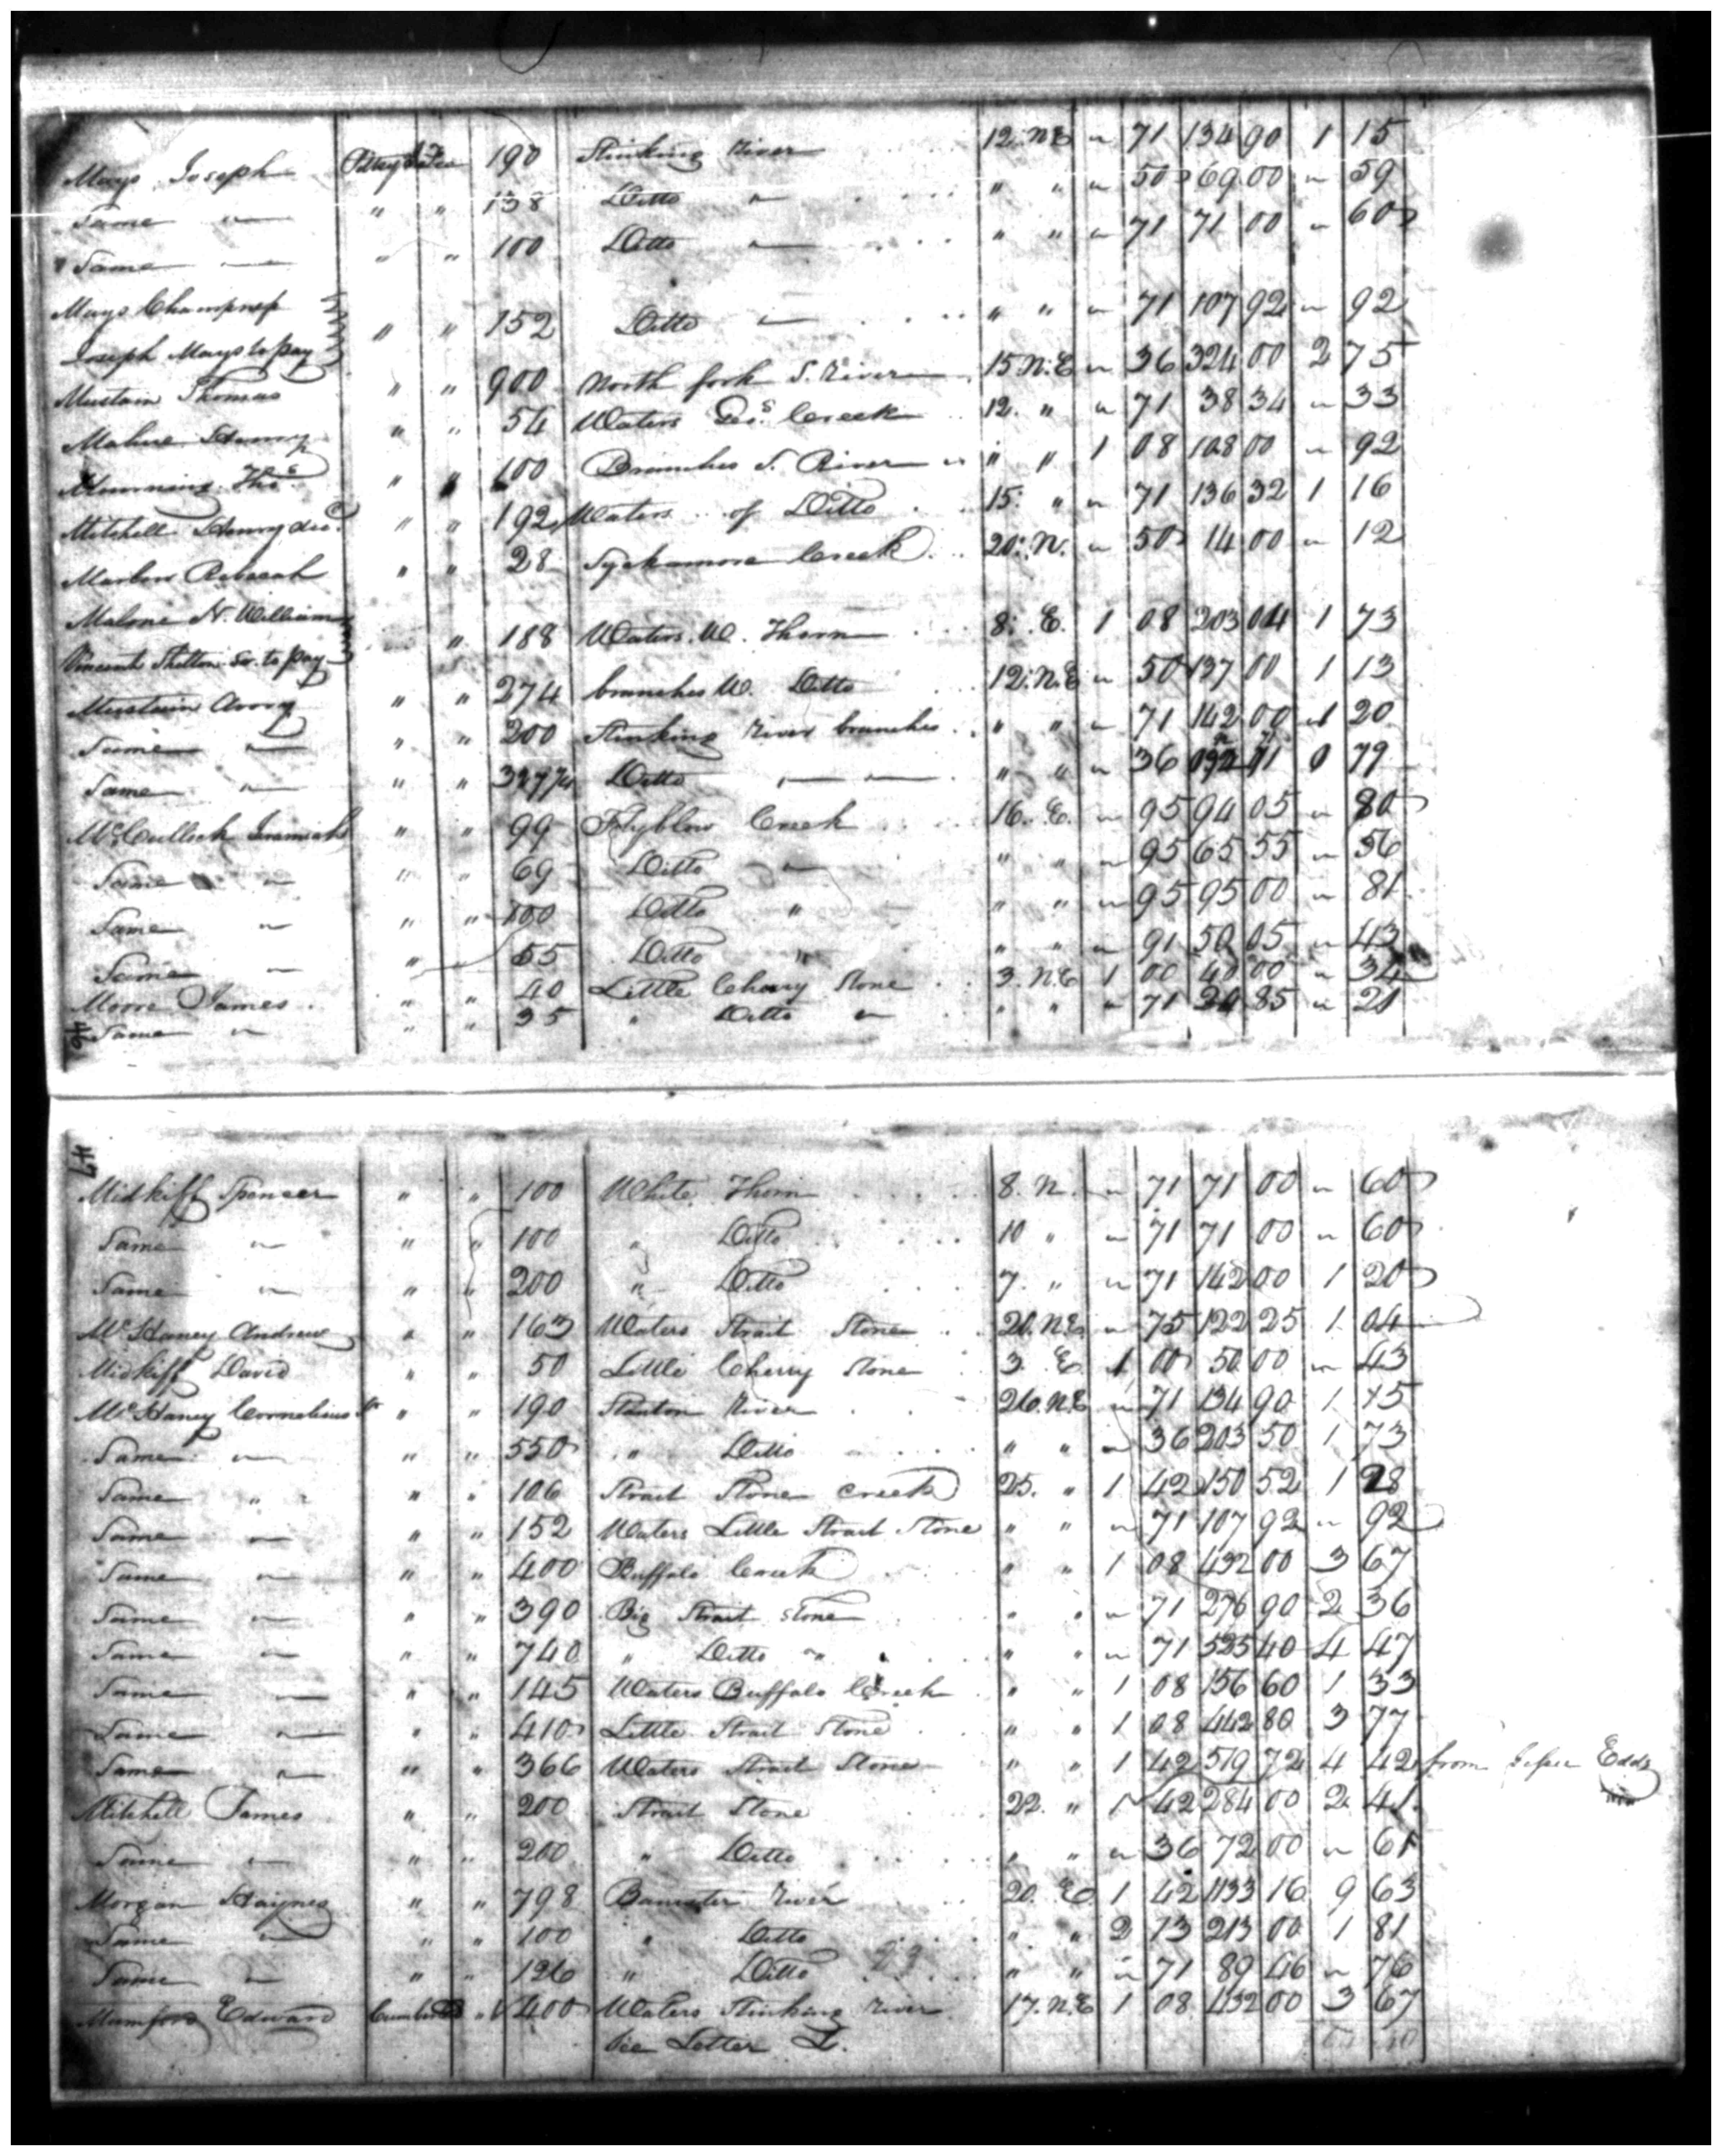 Mays Joseph Pittsyl. Fee 190 Stinking River 12. N.E " 71 134 90 1 15
Same " " " 138 Ditto " " " " 50 69 00 " 59
Same " " " 100 Ditto " " " " 71 71 00 " 60
Mays Champness
Joseph Mays to pay " " 152 Ditto " " " " 71 107 92 " 92
Mustain Thomas " " 900 North fork S. River 15 N.E " 36 324 00 2 75
Mahue Henry " " 54 Waters Geo.s Creek 12. " " 71 38 34 " 33
Munning Tho.s " " 100 Branches S. River " " " 1 08 108 00 " 92
Mitchell Henry dec.d " " 192 Waters of Ditto 15. " " 71 136 32 1 16
Marlow Rebecah " " 28 Syckamore Creek 20. N. " 50 14 00 " 12
Malone N. William
Vincent Shelton sr. to pay " 188 Waters W. Thorn 8. E. 1 08 203 04 1 73
Mustain Avory " " 274 branches W. Ditto 12. N.E " 50 137 00 1 13
Same " " " 200 Stinking River branches " " " 71 142 00 1 20
Same " " " Ditto " " " " 36 79
McCulloch Jeremiah " " 99 Flyblow Creek 16. E. " 95 94 05 " 80
Same " " " 69 Ditto " " " " 95 65 55 " 56
Same " " " 100 Ditto " " " " 95 95 00 " 81
Same " " 55 Ditto " " " " 91 50 05 " 43
Moore James " " 40 Little Cherry Stone 3. N.E 1 00 40 00 " 34
Same " " " 35 " Ditto " " " " 71 24 85 " 21
46
47
Midkiff Spencer " " 100 White Thorn 8. N. " 71 71 00 " 60
Same " " " 100 " Ditto 10 " " 71 71 00 " 60
Same " " " 200 " Ditto 7. " " 71 142 00 1 20
McHaney Andrew " " 163 Waters Strait Stone 20. N.E " 75 122 25 1 04
Midkiff David " " 50 Little Cherry Stone 3. E 1 00 50 00 " 43
McHaney Cornelius Sr " " 190 Stanton River 26. N.E " 71 134 90 1 15
Same " " " 550 " Ditto " " " 36 203 50 1 73
Same " " " 106 Strait Stone Creek 25. " 1 42 150 52 1 28
Same " " " 152 Waters Little Strait Stone " " " 71 107 92 " 92
Same " " " 400 Buffalo Creek " " 1 08 432 00 3 67
Same " " " 390 Big Strait stone " " " 71 276 90 2 36
Same " " " 740 " Ditto " " " " 71 525 40 4 47
Same " " " 145 Waters Buffalo Creek " " 1 08 156 60 1 33
Same " " " 410 Little Strait Stone " " 1 08 442 80 3 77
Same " " " 366 Waters Strait Stone " " 1 42 519 72 4 42 from Edds
Mitchell James " " 200 Strait Stone 22. " 1 42 284 00 2 41
Same " " " 200 " Ditto " " " 36 72 00 " 61
Morgan Haynes " " 798 Bannister River 20. E. 1 42 1133 16 9 63
Same " " " 100 " Ditto " " 2 13 213 00 1 81
Same " " " 126 " Ditto " " " 71 89 46 " 76
Mumford Edward Cumberld " 400 Waters Stinking River 17. N.E 1 08 432 00 3 67
See Letter L.